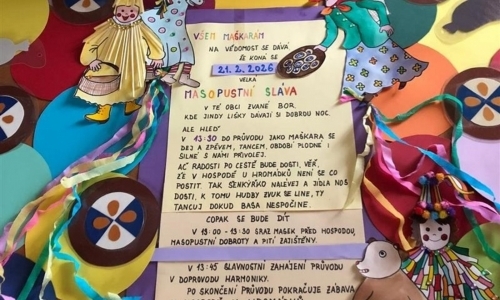 VŠEM MAŠKARAM
NA VĚDOMOST SE DÁVÁ
ŽE KONÁ SE
21. 2. 2026
VELKÁ
MASOPUSTNÍ SLÁVA
V TÉ OBCI ZVANÉ BOR,
KDE JINDY LIŠKY DÁVAJÍ SI DOBROU NOC.
ALE HLEĎ
V 13:30 DO PRŮVODU JAKO MAŠKARA SE
DEJ A ZPĚVEM, TANCEM, OBDOBÍ PLODNÉ I
SILNÉ S NAMI PŘIVOLEJ.
AČ RADOSTI PO CESTĚ BUDE DOSTI, VĚŘ,
ŽE V HOSPODĚ U HROMÁDKŮ NENÍ SE CO
POSTIT. TAK ŠENKÝŘKO NALÉVEJ A JÍDLA NOS
DOSTI, K TOMU HUDBY ZVUK SE LINE, TY
TANCUJ DOKUD BAŠA NESPOČINE.
COPAK SE BUDE DÍT
V 13:00 - 13:30 SRAZ MASEK PŘED HOSPODOU,
MASOPUSTNÍ DOBROTY A PITÍ ZAJIŠTĚNY.
V 13:45 SLAVNOSTNÍ ZAHÁJENÍ PRŮVODU
V DOPROVODU HARMONIKY.
PO SKONČENÍ PRŮVODU POKRAČUJE ZÁBAVA